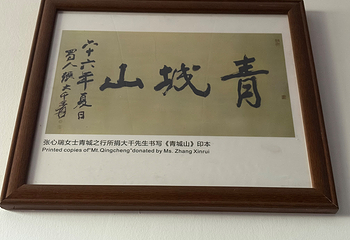 青城山
六十六年夏日
蜀人張大千爰
张心瑞女士青城之行所捐大千先生书写《青城山》印本
Printed copies of"Mt.Qingcheng"donated by Ms. Zhang Xinrui